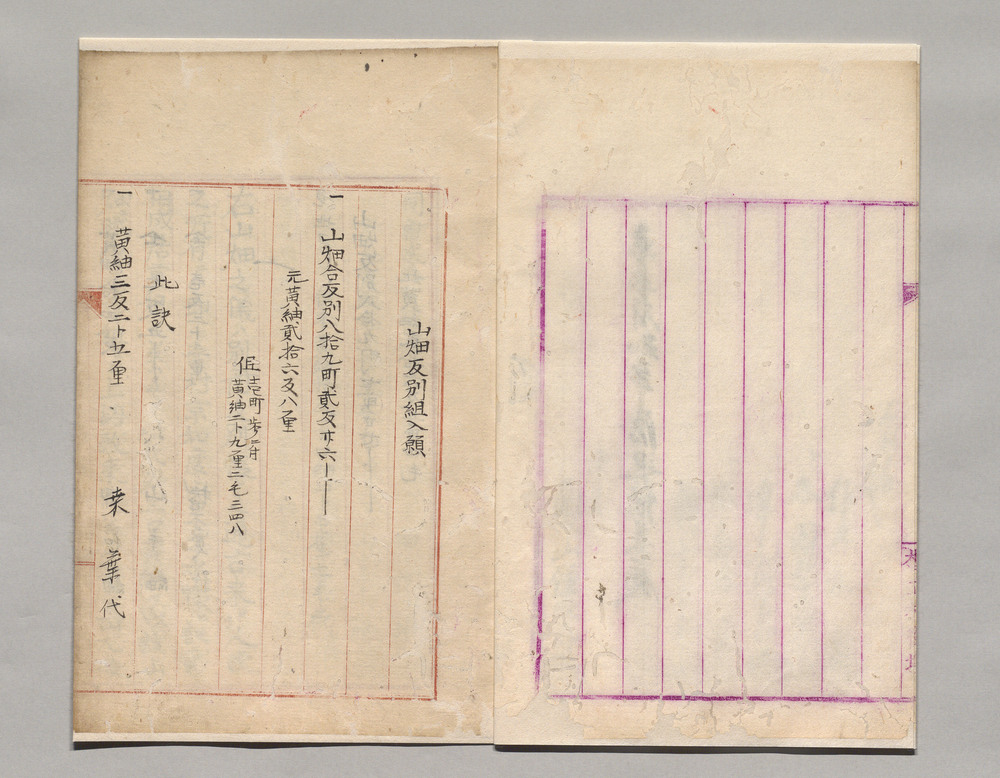 山畑反別組入願
一 山畑合反別八拾九町貳反廿六
元黄紬貳拾六反八厘
但 壱町歩ニ付
黄紬二卜九厘二毛三四八
此訳
一 黄紬三反二卜五厘
桒葉代